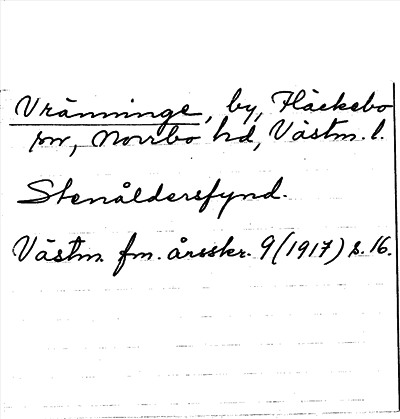 Vränninge, by, Fläckebo
sn, Norrbo hd, Västm. l.
Stenåldersfynd.
Västm. fm. årsskr. 9 (1917) s. 16.